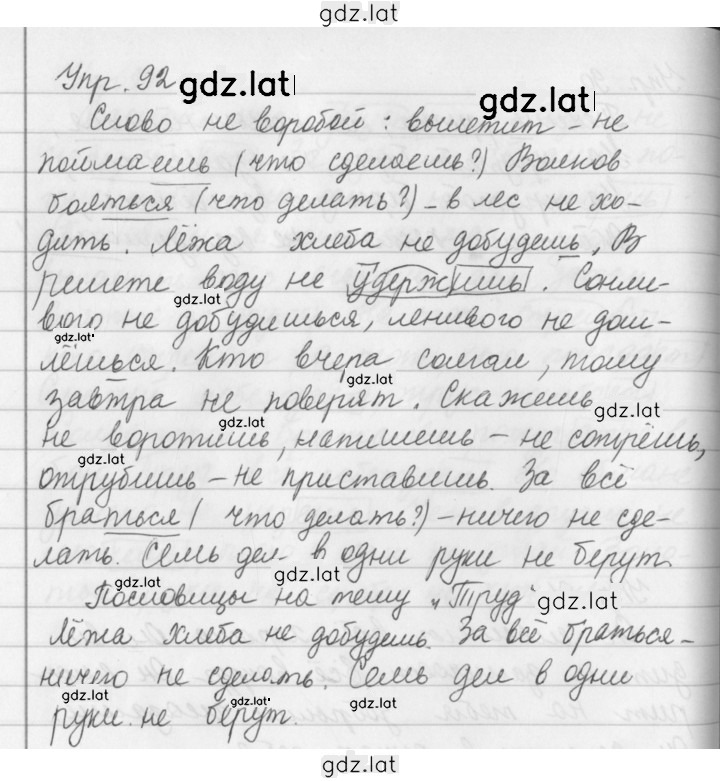 gdz.lat
Упр. 92 gdz.lat gdz.lat
Слово не воробей: вылетит – не
поймаешь (что сделаешь?) Волков
бояться (что делать?) – в лес не хо-
дить. Лёжа хлеба не добудешь. В
решете воду не удержишь. Сонли-
gdz.lat
вого не добудишься, ленивого не дош-
лёшься. Кто вчера солгал, тому
gdz.lat
завтра не поверят. Скажешь
gdz.lat gdz.lat
не воротишь, напишешь – не сотрёшь,
gdz.lat
отрубишь – не приставишь. За всё
браться (что делать?) – ничего не сде-
лать. Семь дел в одни руки не берут.
gdz.lat gdz.lat
Пословицы на тему „Труд" gdz.lat
Лёжа хлеба не добудешь. За всё браться –
ничего не сделать. Семь дел в одни
gdz.lat gdz.lat gdz.lat
руки не берут.
gdz.lat